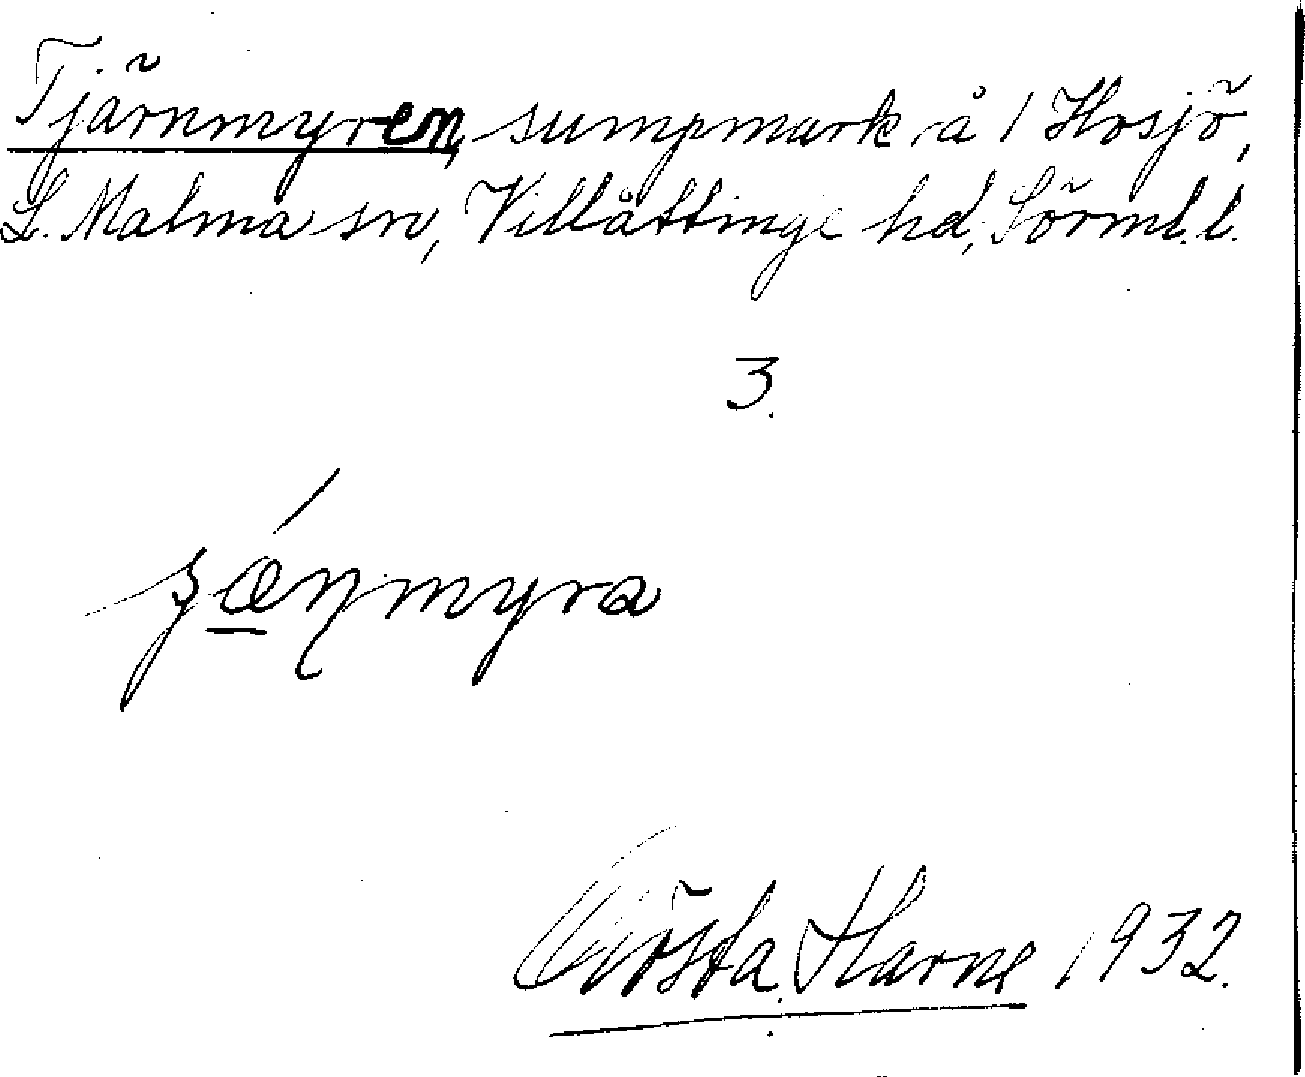 Tjärnmyren, sumpmark å 1 Hosjö,
L. Malma sn, Villåttinge hd, Sörml. l.
3.
myra
Gösta Harne 1932.